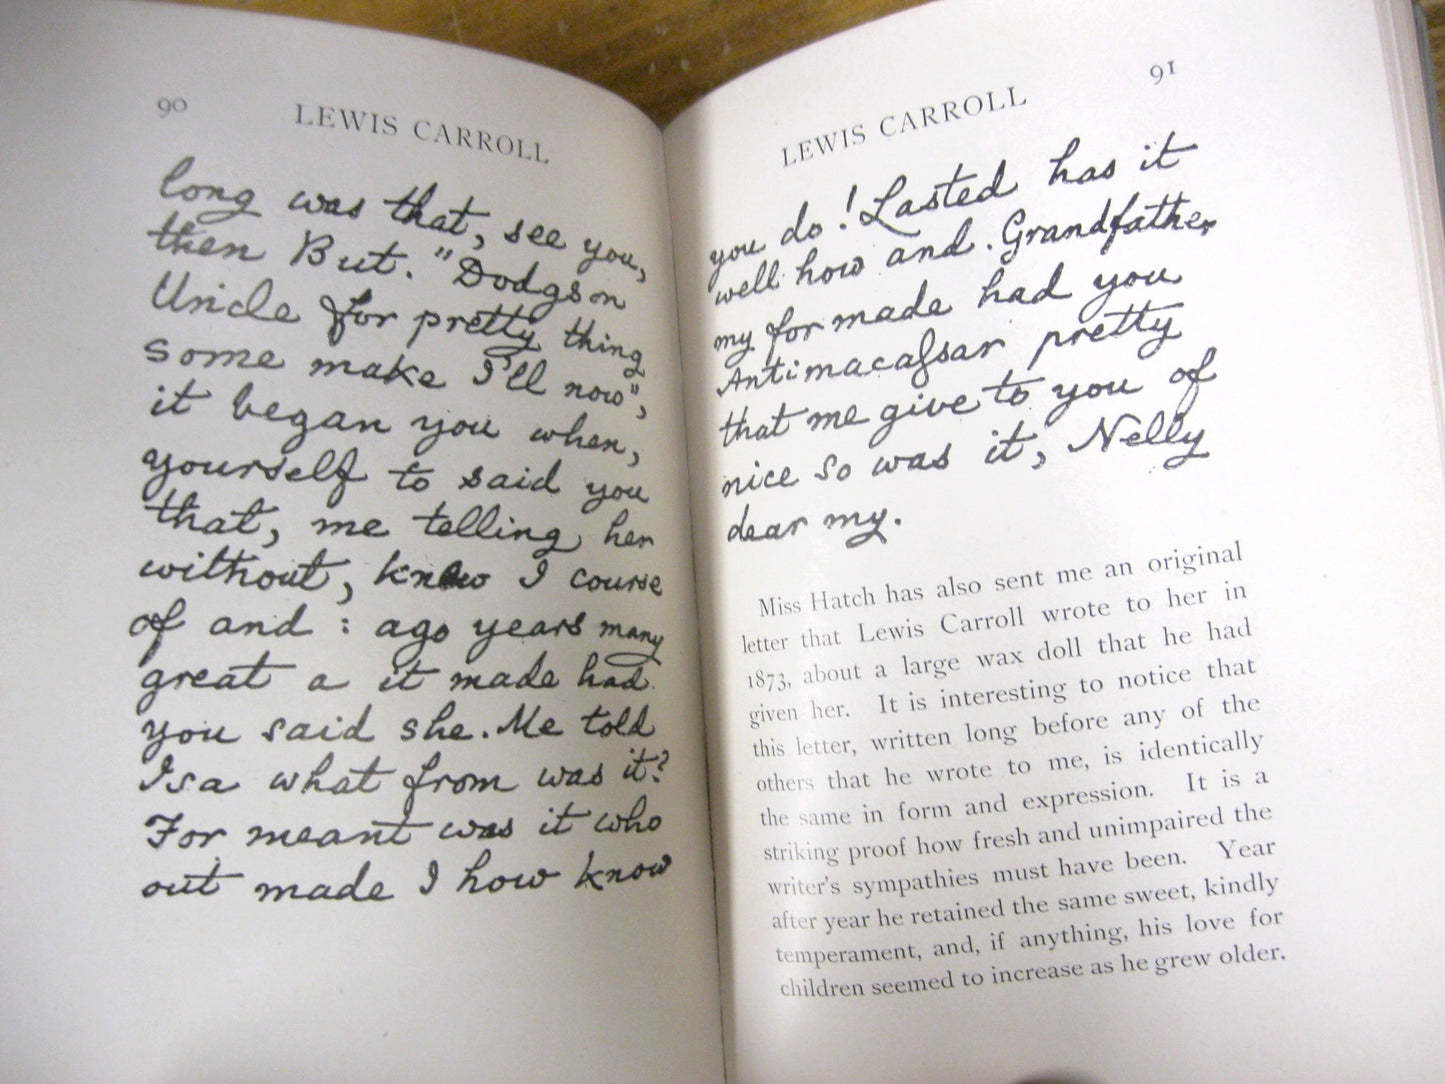 90
LEWIS CARROLL
long was that, see you,
then But. "Dodgson
Uncle for pretty thing
some make I'll now",
it began you when,
yourself to said you
that, me telling her
without, knew I course
of and : ago years many
great a it made had
you said she. Me told
Isa what from was it?
For meant was it who
out made I how know
91
LEWIS CARROLL
you do! Lasted has it
well how and. Grandfather
my for made had you
Antimacassar pretty
that me give to you of
nice so was it, Nelly
dear my.
Miss Hatch has also sent me an original
letter that Lewis Carroll wrote to her in
1873, about a large wax doll that he had
given her. It is interesting to notice that
this letter, written long before any of the
others that he wrote to me, is identically
the same in form and expression. It is a
striking proof how fresh and unimpaired the
writer's sympathies must have been. Year
after year he retained the same sweet, kindly
temperament, and, if anything, his love for
children seemed to increase as he grew older.